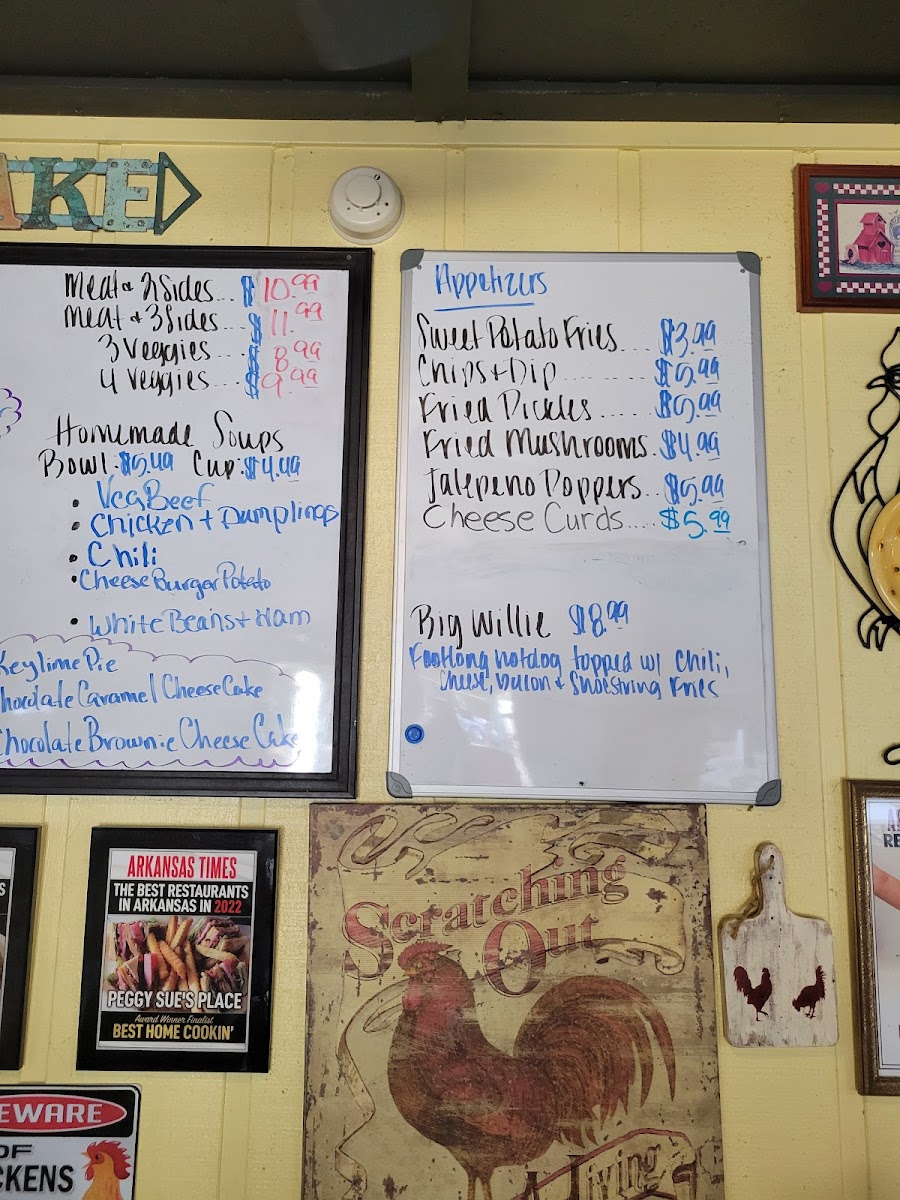 AKE
Meat & 2 Sides... $10.99
Meat & 3 Sides... $11.99
3 Veggies... $8.99
4 Veggies... $9.99
Homemade Soups
Bowl: $5.49 Cup: $4.49
• Veg Beef
• Chicken + Dumplings
• Chili
• Cheese Burger Potato
• White Beans + Ham
Keylime Pie
Chocolate Caramel Cheese Cake
Chocolate Brownie Cheese Cake
Appetizers
Sweet Potato Fries.... $3.99
Chips + Dip.......... $5.99
Fried Pickles...... $5.99
Fried Mushrooms. $4.99
Jalepeno Poppers.. $5.99
Cheese Curds.... $5.99
Big Willie $8.99
Footlong hotdog topped w/ chili,
cheese, bacon & Shoestring Fries
ARKANSAS TIMES
THE BEST RESTAURANTS
IN ARKANSAS IN 2022
PEGGY SUE'S PLACE
Award Winner Finalist
BEST HOME COOKIN'
Scratching
Out
A Living
EWARE
OF
CKENS